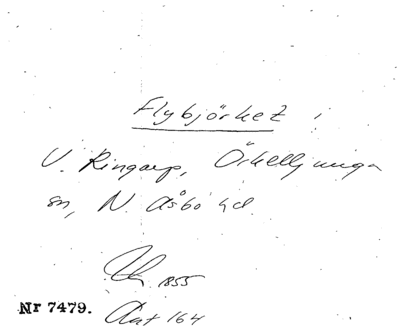 Flybjörket i
V. Ringarp, Örkelljunga
sn, N. Åsbo hd.
1855
Nr 7479. Aat 164